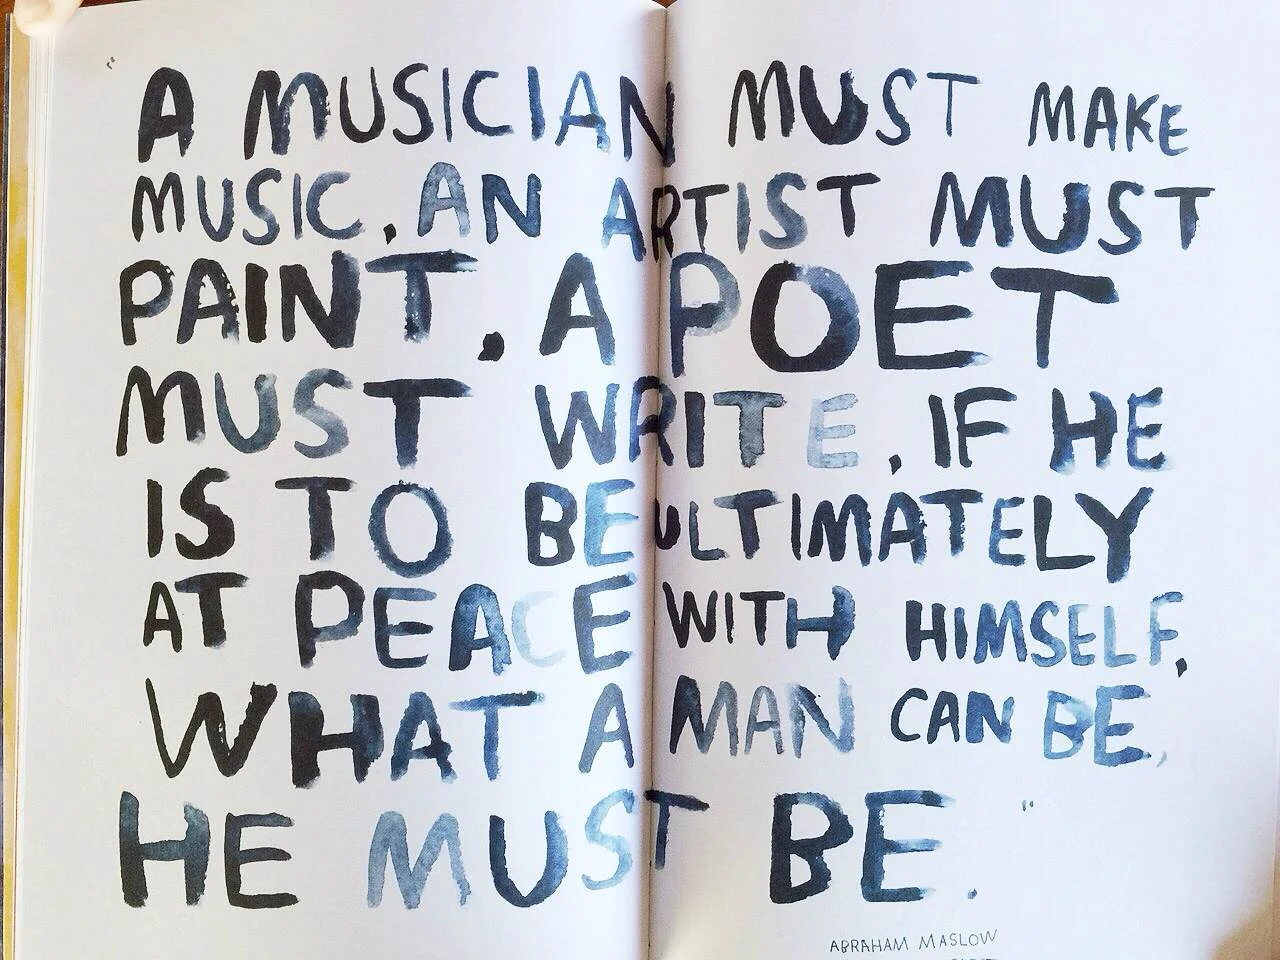 "A MUSICIAN MUST MAKE
MUSIC. AN ARTIST MUST
PAINT. A POET
MUST WRITE, IF HE
IS TO BE ULTIMATELY
AT PEACE WITH HIMSELF.
WHAT A MAN CAN BE,
HE MUST BE."
ABRAHAM MASLOW